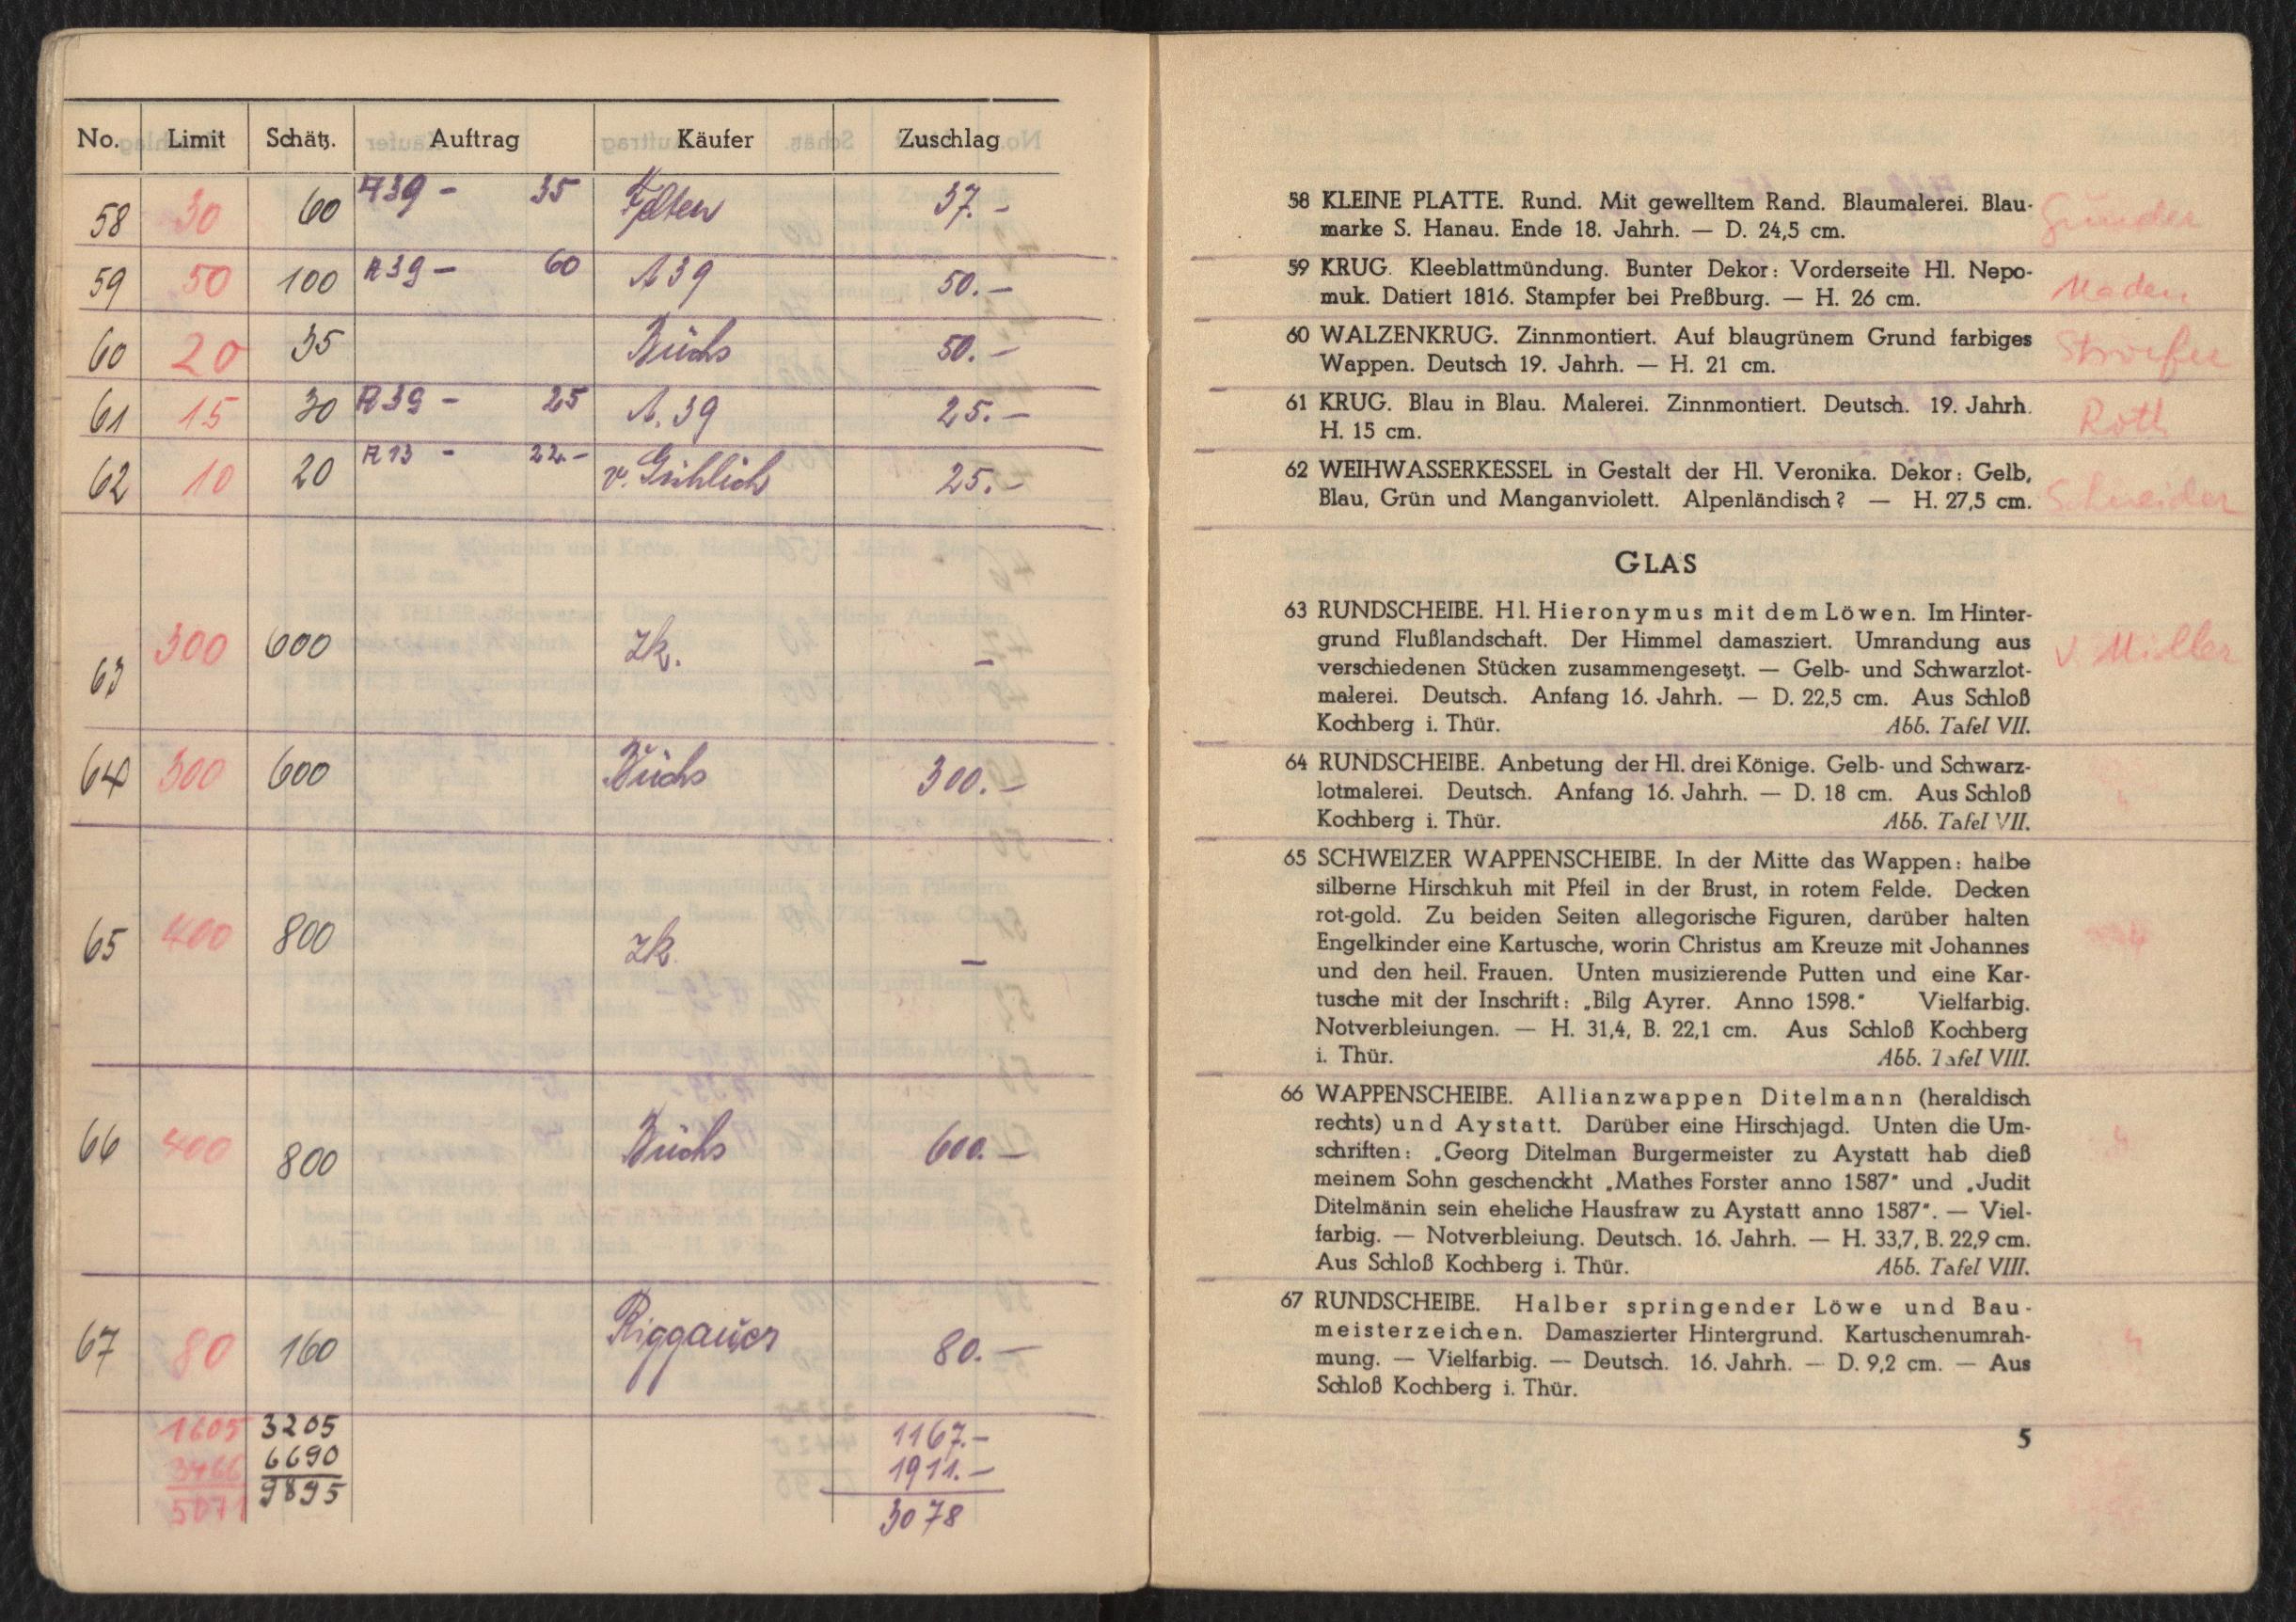 No. Limit Schätz. Auftrag Käufer Zuschlag
58 30 60 A39 - 35 Felten 37.-
59 50 100 A39 - 60 A39 50.-
60 20 35 Büchs 50.-
61 15 30 A39 - 25 A.39 25.-
62 10 20 A13 - 22.- v. 25.-
63 300 600 zk. -
64 300 600 Büchs 300.-
65 400 800 zk. -
66 400 800 Büchs 600.-
67 80 160 Riggauer 80.-
1605 3205 1167.-
3466 6690 1911.-
5071 9895 3078
58 KLEINE PLATTE. Rund. Mit gewelltem Rand. Blaumalerei. Blau-
marke S. Hanau. Ende 18. Jahrh. — D. 24,5 cm.
59 KRUG. Kleeblattmündung. Bunter Dekor: Vorderseite Hl. Nepo-
muk. Datiert 1816. Stampfer bei Preßburg. — H. 26 cm.
60 WALZENKRUG. Zinnmontiert. Auf blaugrünem Grund farbiges
Wappen. Deutsch 19. Jahrh. — H. 21 cm.
61 KRUG. Blau in Blau. Malerei. Zinnmontiert. Deutsch. 19. Jahrh.
H. 15 cm. Roth
62 WEIHWASSERKESSEL in Gestalt der Hl. Veronika. Dekor: Gelb,
Blau, Grün und Manganviolett. Alpenländisch? — H. 27,5 cm. Schneider
GLAS
63 RUNDSCHEIBE. Hl. Hieronymus mit dem Löwen. Im Hinter-
grund Flußlandschaft. Der Himmel damasziert. Umrandung aus
verschiedenen Stücken zusammengesetzt. — Gelb- und Schwarzlot- v. Miller
malerei. Deutsch. Anfang 16. Jahrh. — D. 22,5 cm. Aus Schloß
Kochberg i. Thür. Abb. Tafel VII.
64 RUNDSCHEIBE. Anbetung der Hl. drei Könige. Gelb- und Schwarz-
lotmalerei. Deutsch. Anfang 16. Jahrh. — D. 18 cm. Aus Schloß
Kochberg i. Thür. Abb. Tafel VII.
65 SCHWEIZER WAPPENSCHEIBE. In der Mitte das Wappen: halbe
silberne Hirschkuh mit Pfeil in der Brust, in rotem Felde. Decken
rot-gold. Zu beiden Seiten allegorische Figuren, darüber halten
Engelkinder eine Kartusche, worin Christus am Kreuze mit Johannes
und den heil. Frauen. Unten musizierende Putten und eine Kar-
tusche mit der Inschrift: „Bilg Ayrer. Anno 1598.“ Vielfarbig.
Notverbleiungen. — H. 31,4, B. 22,1 cm. Aus Schloß Kochberg
i. Thür. Abb. Tafel VIII.
66 WAPPENSCHEIBE. Allianzwappen Ditelmann (heraldisch
rechts) und Aystatt. Darüber eine Hirschjagd. Unten die Um-
schriften: „Georg Ditelman Burgermeister zu Aystatt hab dieß
meinem Sohn geschenckht „Mathes Forster anno 1587“ und „Judit
Ditelmänin sein eheliche Hausfraw zu Aystatt anno 1587“. — Viel-
farbig. — Notverbleiung. Deutsch. 16. Jahrh. — H. 33,7, B. 22,9 cm.
Aus Schloß Kochberg i. Thür. Abb. Tafel VIII.
67 RUNDSCHEIBE. Halber springender Löwe und Bau-
meisterzeichen. Damaszierter Hintergrund. Kartuschenumrah-
mung. — Vielfarbig. — Deutsch. 16. Jahrh. — D. 9,2 cm. — Aus
Schloß Kochberg i. Thür.
5